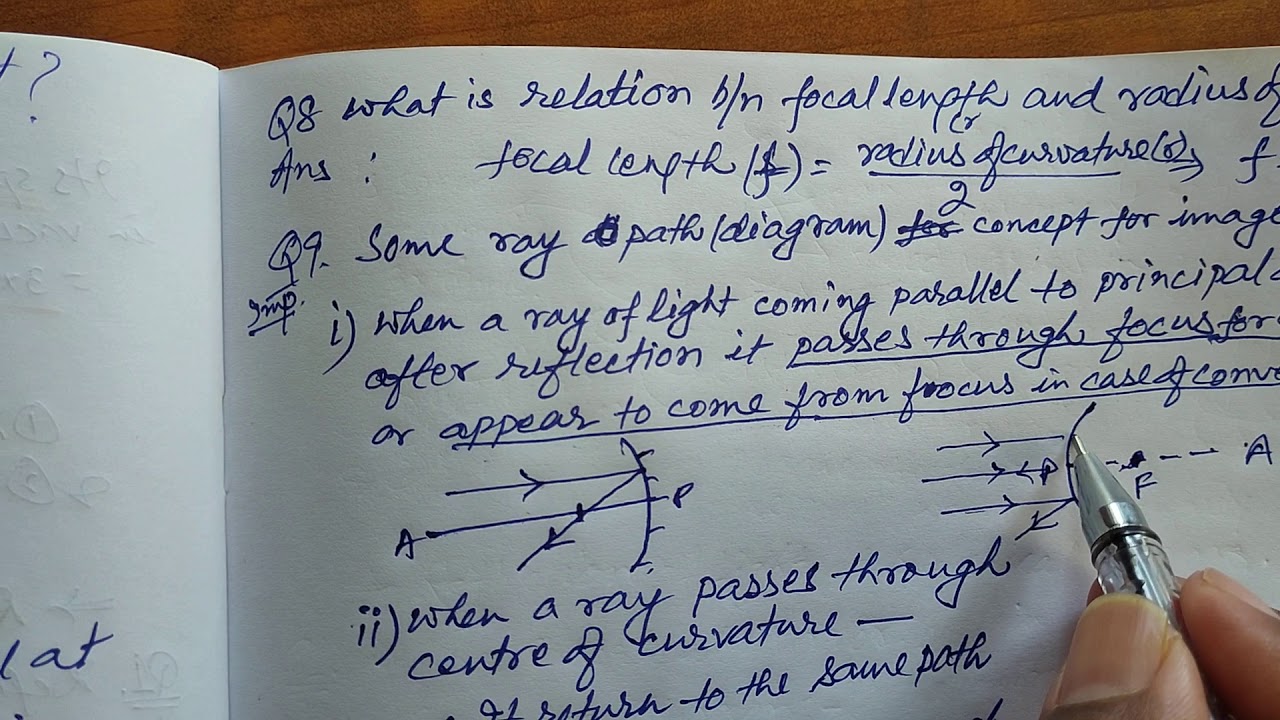 t?
Q8 what is relation b/n focal length and radius of
(r
Ans : focal length (f) = radius of curvature(r), f
2
Q9. Some ray path (diagram) for concept for image
Imp. i) when a ray of light coming parallel to principal
after reflection it passes through focus for
or appear to come from focus in case of conve
A P
P F A
ii) when a ray passes through
centre of curvature —
at
It return to the same path